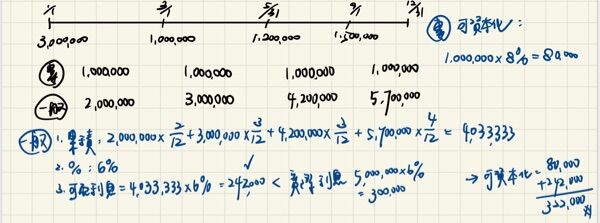 1/1 3/1 5/31 9/1 12/31
3,000,000 1,000,000 1,200,000 1,500,000
專 1,000,000 1,000,000 1,000,000 1,000,000
一般 2,000,000 3,000,000 4,200,000 5,700,000
專 可資本化:
1,000,000×8%=80,000
一般 1. 累積: 2,000,000×2/12+3,000,000×3/12+4,200,000×3/12+5,700,000×4/12=4,033,333
2. %:6%
3. 可取利息=4,033,333×6%=242,000 < 實際利息 5,000,000×6%
=300,000
→ 可資本化= 80,000
+242,000
322,000